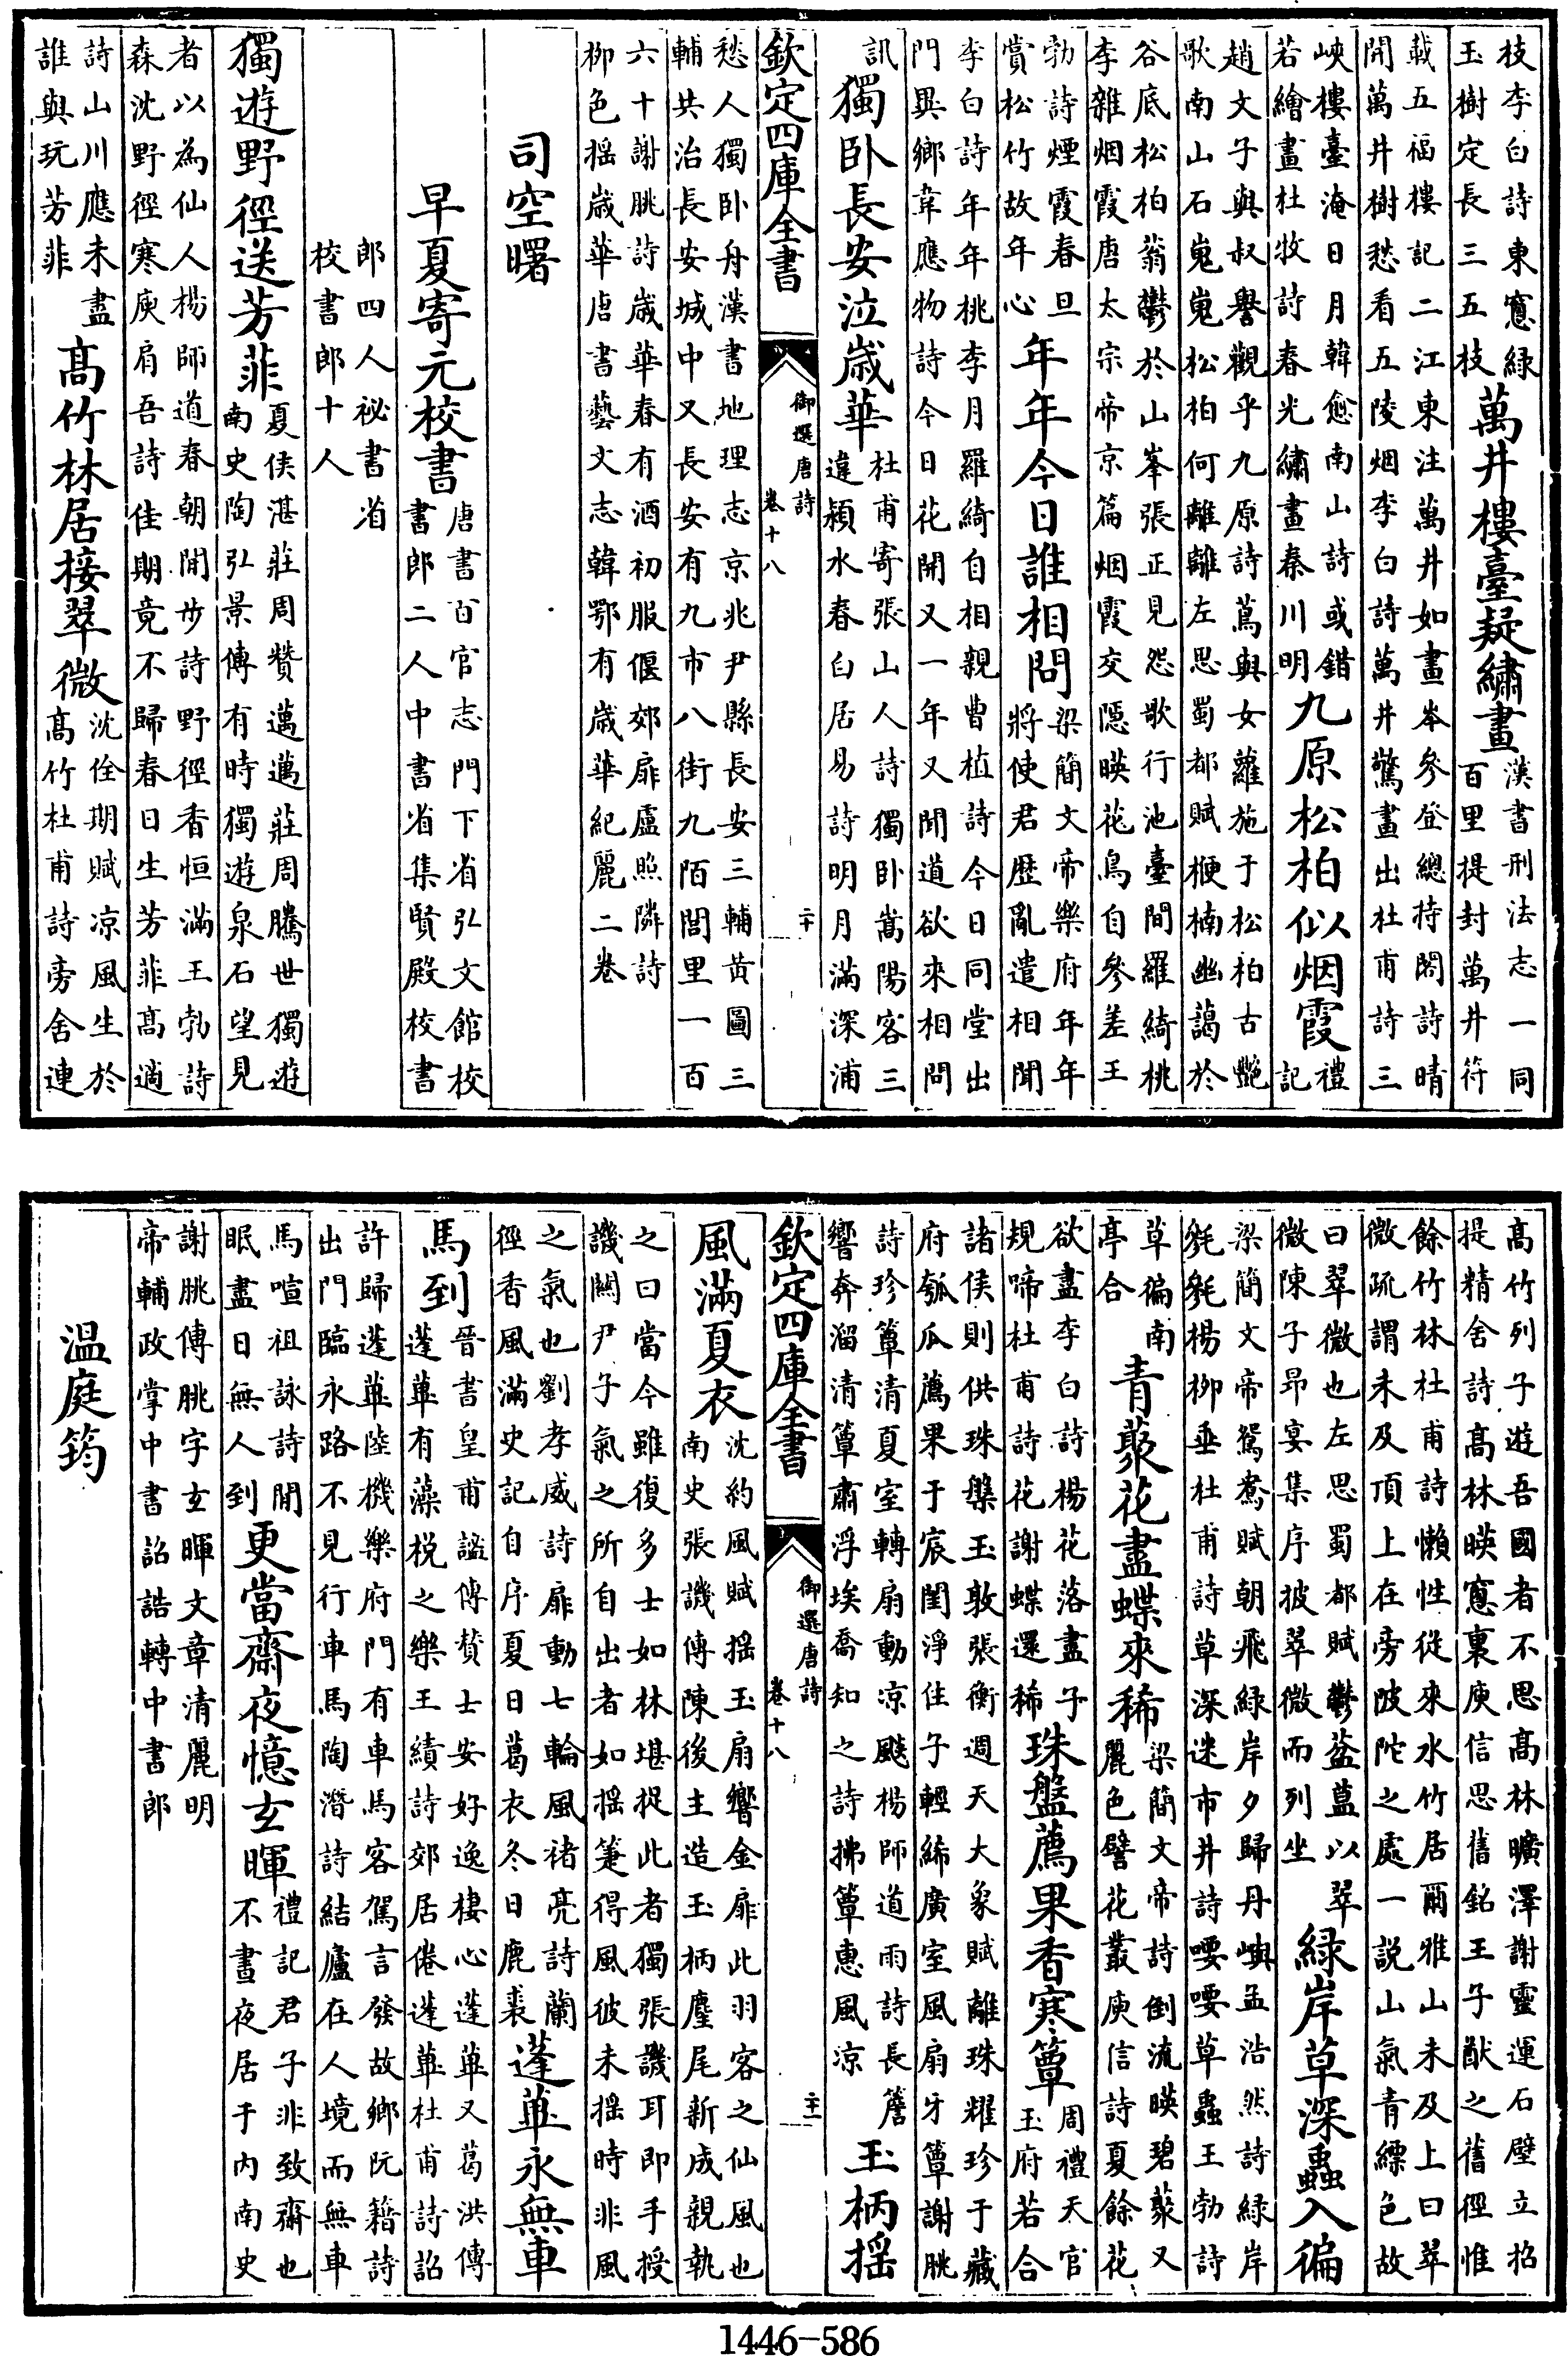 枝李白詩東窻綠
玉樹定長三五枝
萬井樓臺疑繡畫
漢書刑法志一同
百里提封萬井符
載五福樓記二江東注萬井如畫岑參登總持閣詩晴
開萬井樹愁看五陵烟李白詩萬井驚畫出杜甫詩三
峽樓臺淹日月韓愈南山詩或錯
若繪畫杜牧詩春光繡畫秦川明
九原松柏似烟霞
禮
記
趙文子與叔譽觀乎九原詩蔦與女蘿施于松柏古艷
歌南山石嵬嵬松柏何離離左思蜀都賦楩楠幽藹於
谷底松柏蓊鬱於山峯張正見怨歌行池臺間羅綺桃
李雜烟霞唐太宗帝京篇烟霞交隱暎花鳥自參差王
勃詩煙霞春旦
賞松竹故年心
年年今日誰相問
梁簡文帝樂府年年
將使君歷亂遣相聞
李白詩年年桃李月羅綺自相親曹植詩今日同堂出
門異鄉韋應物詩今日花開又一年又聞道欲來相問
訊
獨卧長安泣歲華
杜甫寄張山人詩獨卧嵩陽客三
違潁水春白居易詩明月滿深浦
欽定四庫全書
御選唐詩
卷十八
二十
愁人獨卧舟漢書地理志京兆尹縣長安三輔黃圖三
輔共治長安城中又長安有九市八街九陌閭里一百
六十謝朓詩歲華春有酒初服偃郊扉盧照隣詩
柳色搖歲華唐書藝文志韓鄂有歲華紀麗二卷
司空曙
早夏寄元校書
唐書百官志門下省弘文館校
書郎二人中書省集賢殿校書
郎四人祕書省
校書郎十人
獨遊野徑送芳菲
夏侯湛莊周贊邁邁莊周騰世獨遊
南史陶弘景傳有時獨遊泉石望見
者以為仙人楊師道春朝閒步詩野徑香恒滿王勃詩
森沈野徑寒庾肩吾詩佳期竟不歸春日生芳菲髙適
詩山川應未盡
誰與玩芳菲
髙竹林居接翠微
沈佺期賦凉風生於
髙竹杜甫詩旁舍連
髙竹列子遊吾國者不思髙林曠澤謝靈運石壁立招
提精舍詩髙林暎窻裏庾信思舊銘王子猷之舊徑惟
餘竹林杜甫詩懶性從來水竹居爾雅山未及上曰翠
微疏謂未及頂上在旁陂陀之處一說山氣青縹色故
曰翠微也左思蜀都賦鬱葐蒕以翠
微陳子昂宴集序披翠微而列坐
綠岸草深蟲入徧
梁簡文帝鴛鴦賦朝飛綠岸夕歸丹嶼孟浩然詩綠岸
毿毿楊柳垂杜甫詩草深迷市井詩喓喓草蟲王勃詩
草徧南
亭合
青藂花盡蝶來稀
梁簡文帝詩倒流暎碧藂又
麗色譬花叢庾信詩夏餘花
欲盡李白詩楊花落盡子
規啼杜甫詩花謝蝶還稀
珠盤薦果香寒簟
周禮天官
玉府若合
諸侯則供珠槃玉敦張衡週天大象賦離珠耀珍于藏
府瓠瓜薦果于宸闈淨住子輕絺廣室風扇牙簟謝朓
詩珍簟清夏室轉扇動凉颸楊師道雨詩長簷
響奔溜清簟肅浮埃喬知之詩拂簟惠風凉
玉柄搖
欽定四庫全書
御選唐詩
卷十八
二十一
風滿夏衣
沈約風賦搖玉扇響金扉此羽客之仙風也
南史張譏傳陳後主造玉柄麈尾新成親執
之曰當今雖復多士如林堪捉此者獨張譏耳即手授
譏關尹子氣之所自出者如搖箑得風彼未搖時非風
之氣也劉孝威詩扉動七輪風褚亮詩蘭
徑香風滿史記自序夏日葛衣冬日鹿裘
蓬蓽永無車
馬到
晉書皇甫謐傳贊士安好逸棲心蓬蓽又葛洪傳
蓬蓽有藻棁之樂王績詩郊居倦蓬蓽杜甫詩詔
許歸蓬蓽陸機樂府門有車馬客駕言發故鄉阮籍詩
出門臨永路不見行車馬陶潛詩結廬在人境而無車
馬喧祖詠詩閒
眠盡日無人到
更當齋夜憶玄暉
禮記君子非致齋也
不晝夜居于内南史
謝朓傳朓字玄暉文章清麗明
帝輔政掌中書詔誥轉中書郎
温庭筠
1446-586